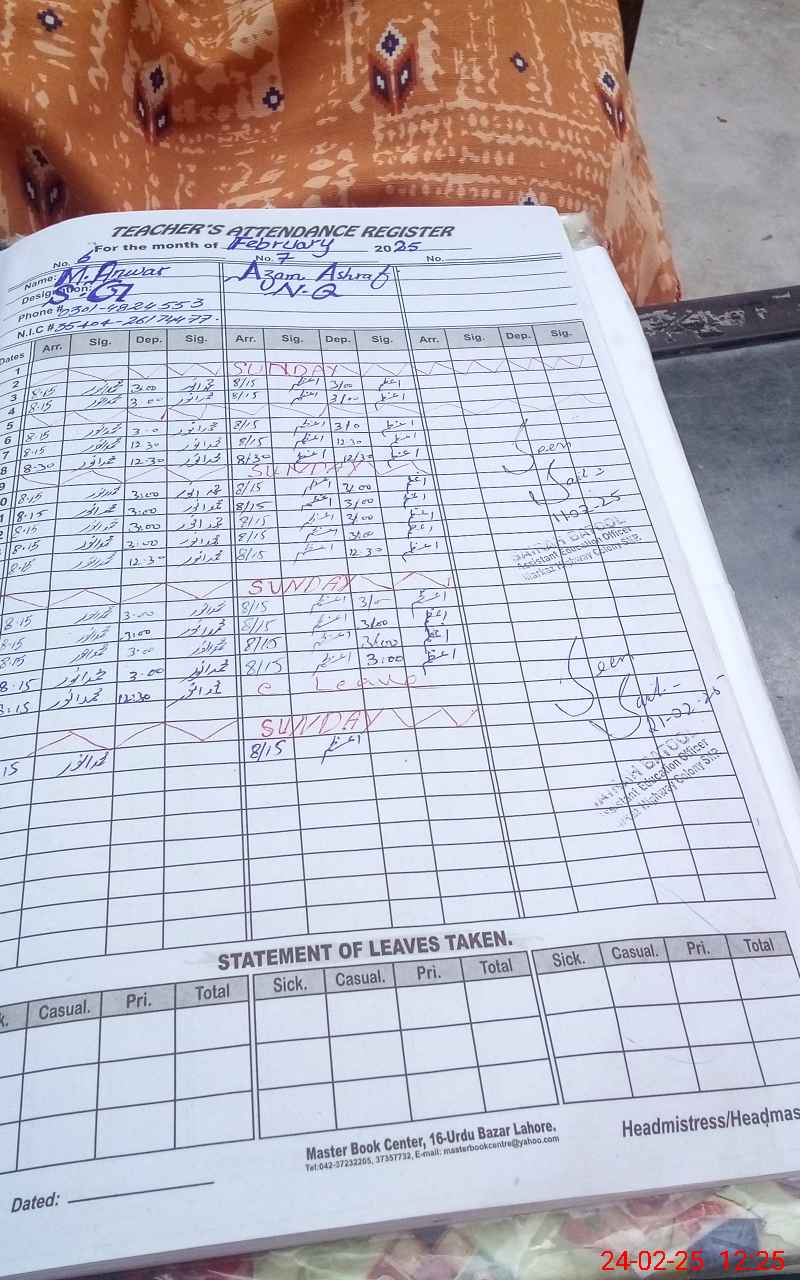 TEACHER'S ATTENDANCE REGISTER
For the month of February 2025
No. 6 No. 7 No.
Name: M. Anwar Azam Ashraf
Designation: S.G N-Q
Phone #
N.I.C #
Dates Arr. Sig. Dep. Sig. Arr. Sig. Dep. Sig. Arr. Sig. Dep. Sig.
1
2 SUNDAY
3 8:15 محمد انور 3:00 محمد انور 8/15 اعظم 3/00 اعظم
4 8:15 محمد انور 3:00 محمد انور 8/15 اعظم 3/00 اعظم
5
6 8:15 محمد انور 3:00 محمد انور 8/15 اعظم 3/0 اعظم
7 8:15 محمد انور 12:30 محمد انور 8/15 اعظم 12:30 اعظم
8 8:30 محمد انور 12:30 محمد انور 8/30 اعظم 12/30 اعظم
9 SUNDAY
0 8:15 محمد انور 3:00 محمد انور 8/15 اعظم 3/00 اعظم
1 8:15 محمد انور 3:00 محمد انور 8/15 اعظم 3/00 اعظم
2 8:15 محمد انور 3:00 محمد انور 8/15 اعظم 3/00 اعظم
8:15 محمد انور 3:00 محمد انور 8/15 اعظم 3/00 اعظم
8:15 محمد انور 12:30 محمد انور 8/15 اعظم 12:30 اعظم
SUNDAY
8:15 محمد انور 3:00 محمد انور 8/15 اعظم 3/0 اعظم
8:15 محمد انور 3:00 محمد انور 8/15 اعظم 3/00 اعظم
8:15 محمد انور 3:00 محمد انور 8/15 اعظم 3:00 اعظم
8:15 محمد انور 3:00 محمد انور 8/15 اعظم 3:00 اعظم
8:15 محمد انور 12:30 محمد انور c Leave
SUNDAY
15 محمد انور 8/15 اعظم
Seen
11-02-25
Assistant Education Officer
Markaz Highway Colony
Seen
21-02-25
Assistant Education Officer
Highway Colony
STATEMENT OF LEAVES TAKEN.
k. Casual. Pri. Total Sick. Casual. Pri. Total Sick. Casual. Pri. Total
Master Book Center, 16-Urdu Bazar Lahore.
Tel:042-37232205, 37357732, E-mail: masterbookcentre@yahoo.com
Headmistress/Headmas
Dated:
24-02-25 12:25